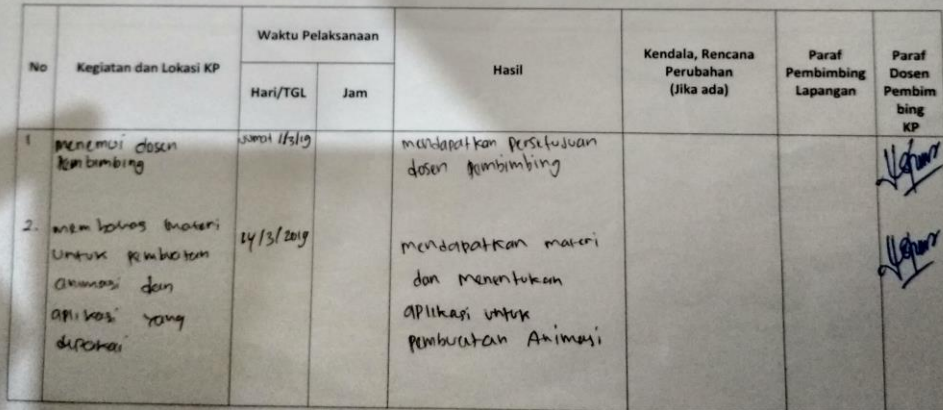 No
Kegiatan dan Lokasi KP
Waktu Pelaksanaan
Hari/TGL
Jam
Hasil
Kendala, Rencana
Perubahan
(Jika ada)
Paraf
Pembimbing
Lapangan
Paraf
Dosen
Pembim
bing
KP
1 menemui dosen
Pembimbing
Jumat 1/3/19
mendapatkan Persetujuan
dosen pembimbing
2. membahas materi
untuk pembuatan
animasi dan
aplikasi yang
dipakai
14/3/2019
mendapatkan materi
dan menentukan
aplikasi untuk
pembuatan Animasi